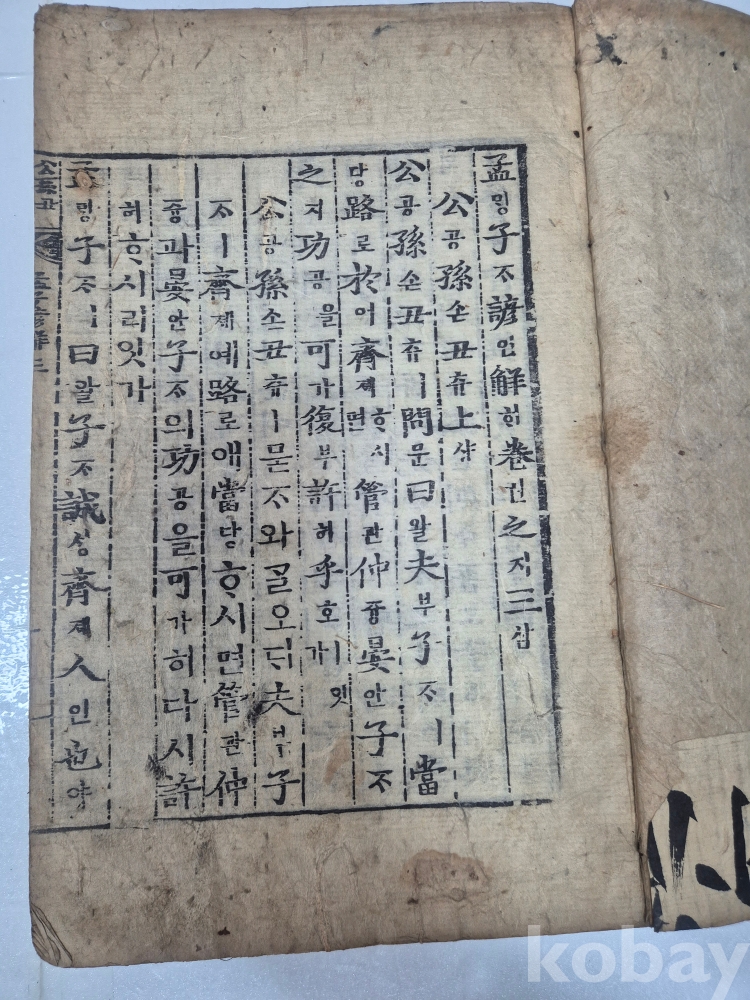 孟ᄆᆡᆼ子ᄌᆞ諺언解ᄒᆡ卷권之지三삼
公공孫손丑츄上샹
公공孫손丑츄ㅣ問문曰왈夫부子ᄌᆞㅣ當
당路로於어齊졔ᄒᆞ시면管관仲즁晏안子ᄌᆞ
之지功공을可가復부許허乎호ㅣ잇가
公공孫손丑츄ㅣ묻ᄌᆞ와ᄀᆞᆯ오ᄃᆡ夫부子
ᄌᆞㅣ齊졔예路로애當당ᄒᆞ시면管관仲
즁과晏안子ᄌᆞ의功공을可가히다시許
허ᄒᆞ시리잇가
孟ᄆᆡᆼ子ᄌᆞㅣ曰왈子ᄌᆞ誠셩齊졔人인也야
公孫丑 孟子諺解三
kobay